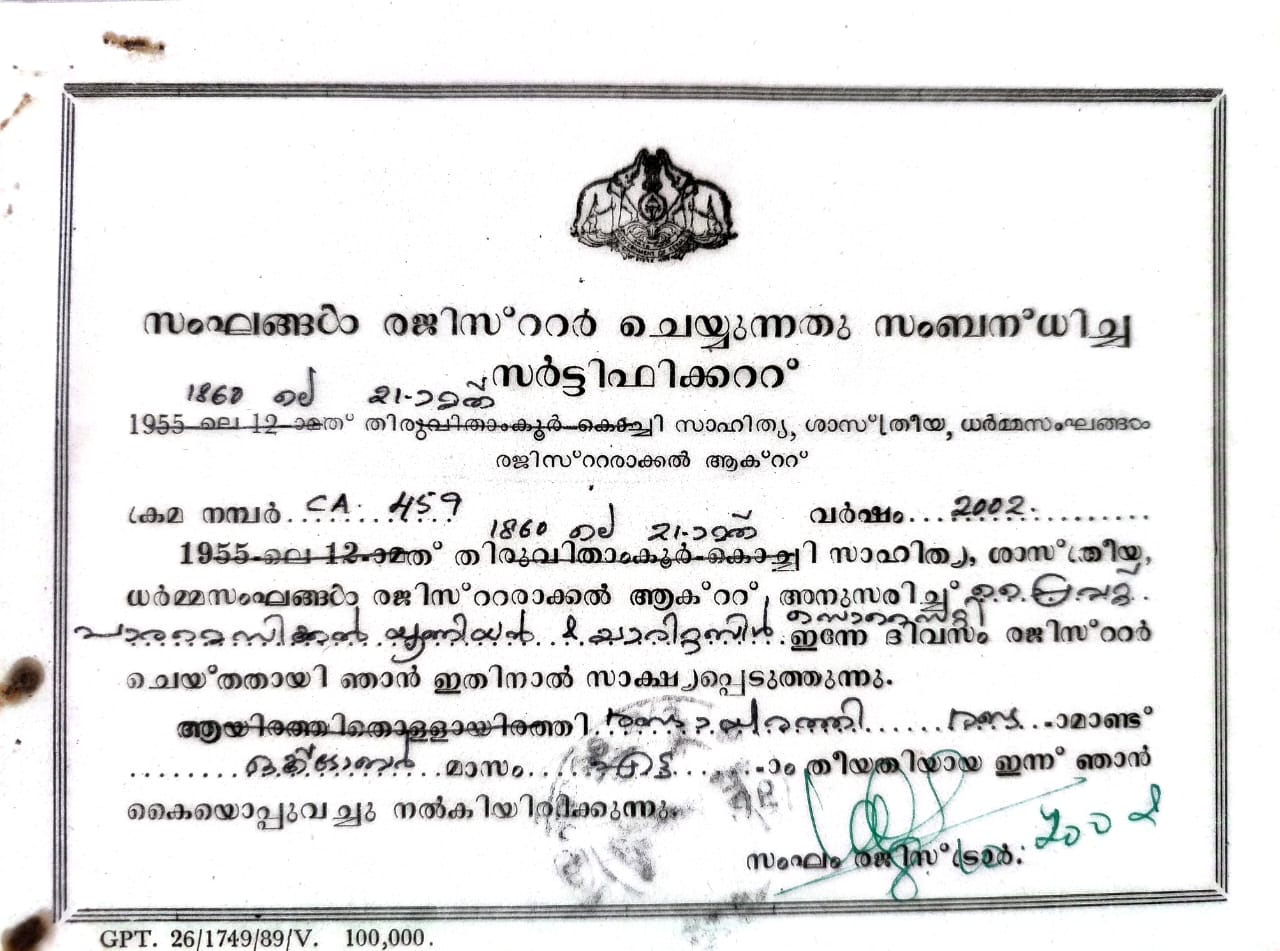 സംഘങ്ങൾ രജിസ്റ്റർ ചെയ്യുന്നതു സംബന്ധിച്ച
സർട്ടിഫിക്കററ്
1860 ലെ 21-ാമത്
1955-ലെ 12-ാമത് തിരുവിതാംകൂർ-കൊച്ചി സാഹിത്യ, ശാസ്ത്രീയ, ധർമ്മസംഘങ്ങൾ
രജിസ്റ്ററാക്കൽ ആക്ററ്
ക്രമ നമ്പർ CA. 459 വർഷം 2002.
1860 ലെ 21-ാമത്
1955-ലെ 12-ാമത് തിരുവിതാംകൂർ-കൊച്ചി സാഹിത്യ, ശാസ്ത്രീയ,
ധർമ്മസംഘങ്ങൾ രജിസ്റ്ററാക്കൽ ആക്ററ് അനുസരിച്ച്
യൂണിയൻ & സൊസൈറ്റി ഇന്നേ ദിവസം രജിസ്റ്റർ
ചെയ്തതായി ഞാൻ ഇതിനാൽ സാക്ഷ്യപ്പെടുത്തുന്നു.
ആയിരത്തിതൊള്ളായിരത്തി രണ്ടായിരത്തി രണ്ട -ാമാണ്ട്
ഒക്ടോബർ മാസം എട്ട -ാം തീയതിയായ ഇന്ന് ഞാൻ
കൈയൊപ്പുവച്ചു നൽകിയിരിക്കുന്നു.
സംഘം രജിസ്ട്രാർ.
GPT. 26/1749/89/V. 100,000.